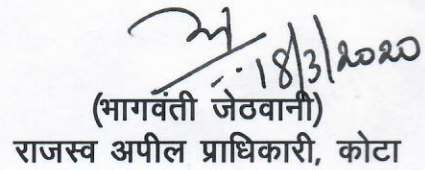 18/3/2020
(भागवंती जेठवानी)
राजस्व अपील प्राधिकारी, कोटा